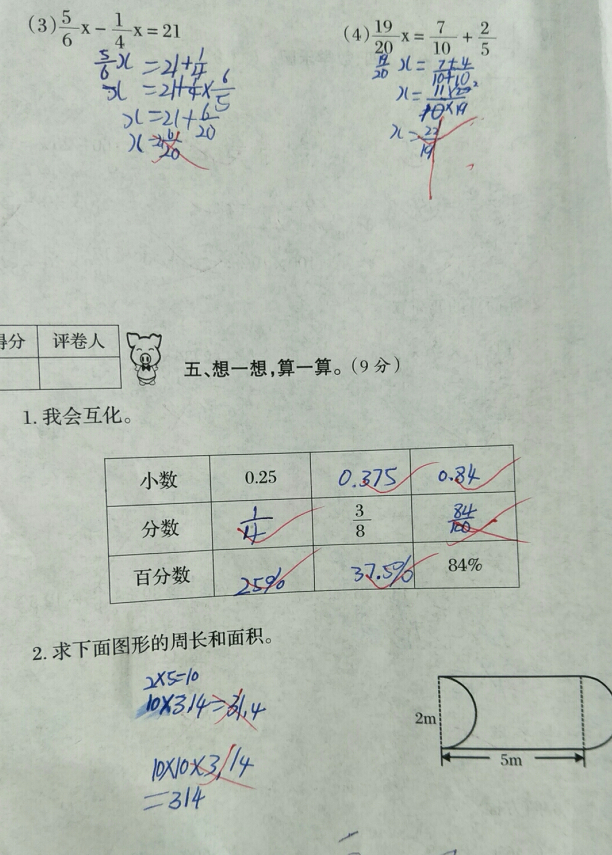 (3) 5/6 x − 1/4 x = 21
5/6 x = 21 + 1/4
x = 21 + 1/4 × 6/5
x = 21 + 6/20
(4) 19/20 x = 7/10 + 2/5
19/20 x = 7+4/10+10
x = 22/19
得分 评卷人
五、想一想,算一算。(9 分)
1. 我会互化。
小数 0.25 0.375 0.84
分数 1/4 3/8 84/100
百分数 25% 37.5% 84%
2. 求下面图形的周长和面积。
2×5=10
10×3.14=31.4
10×10×3.14
=314
2m
5m